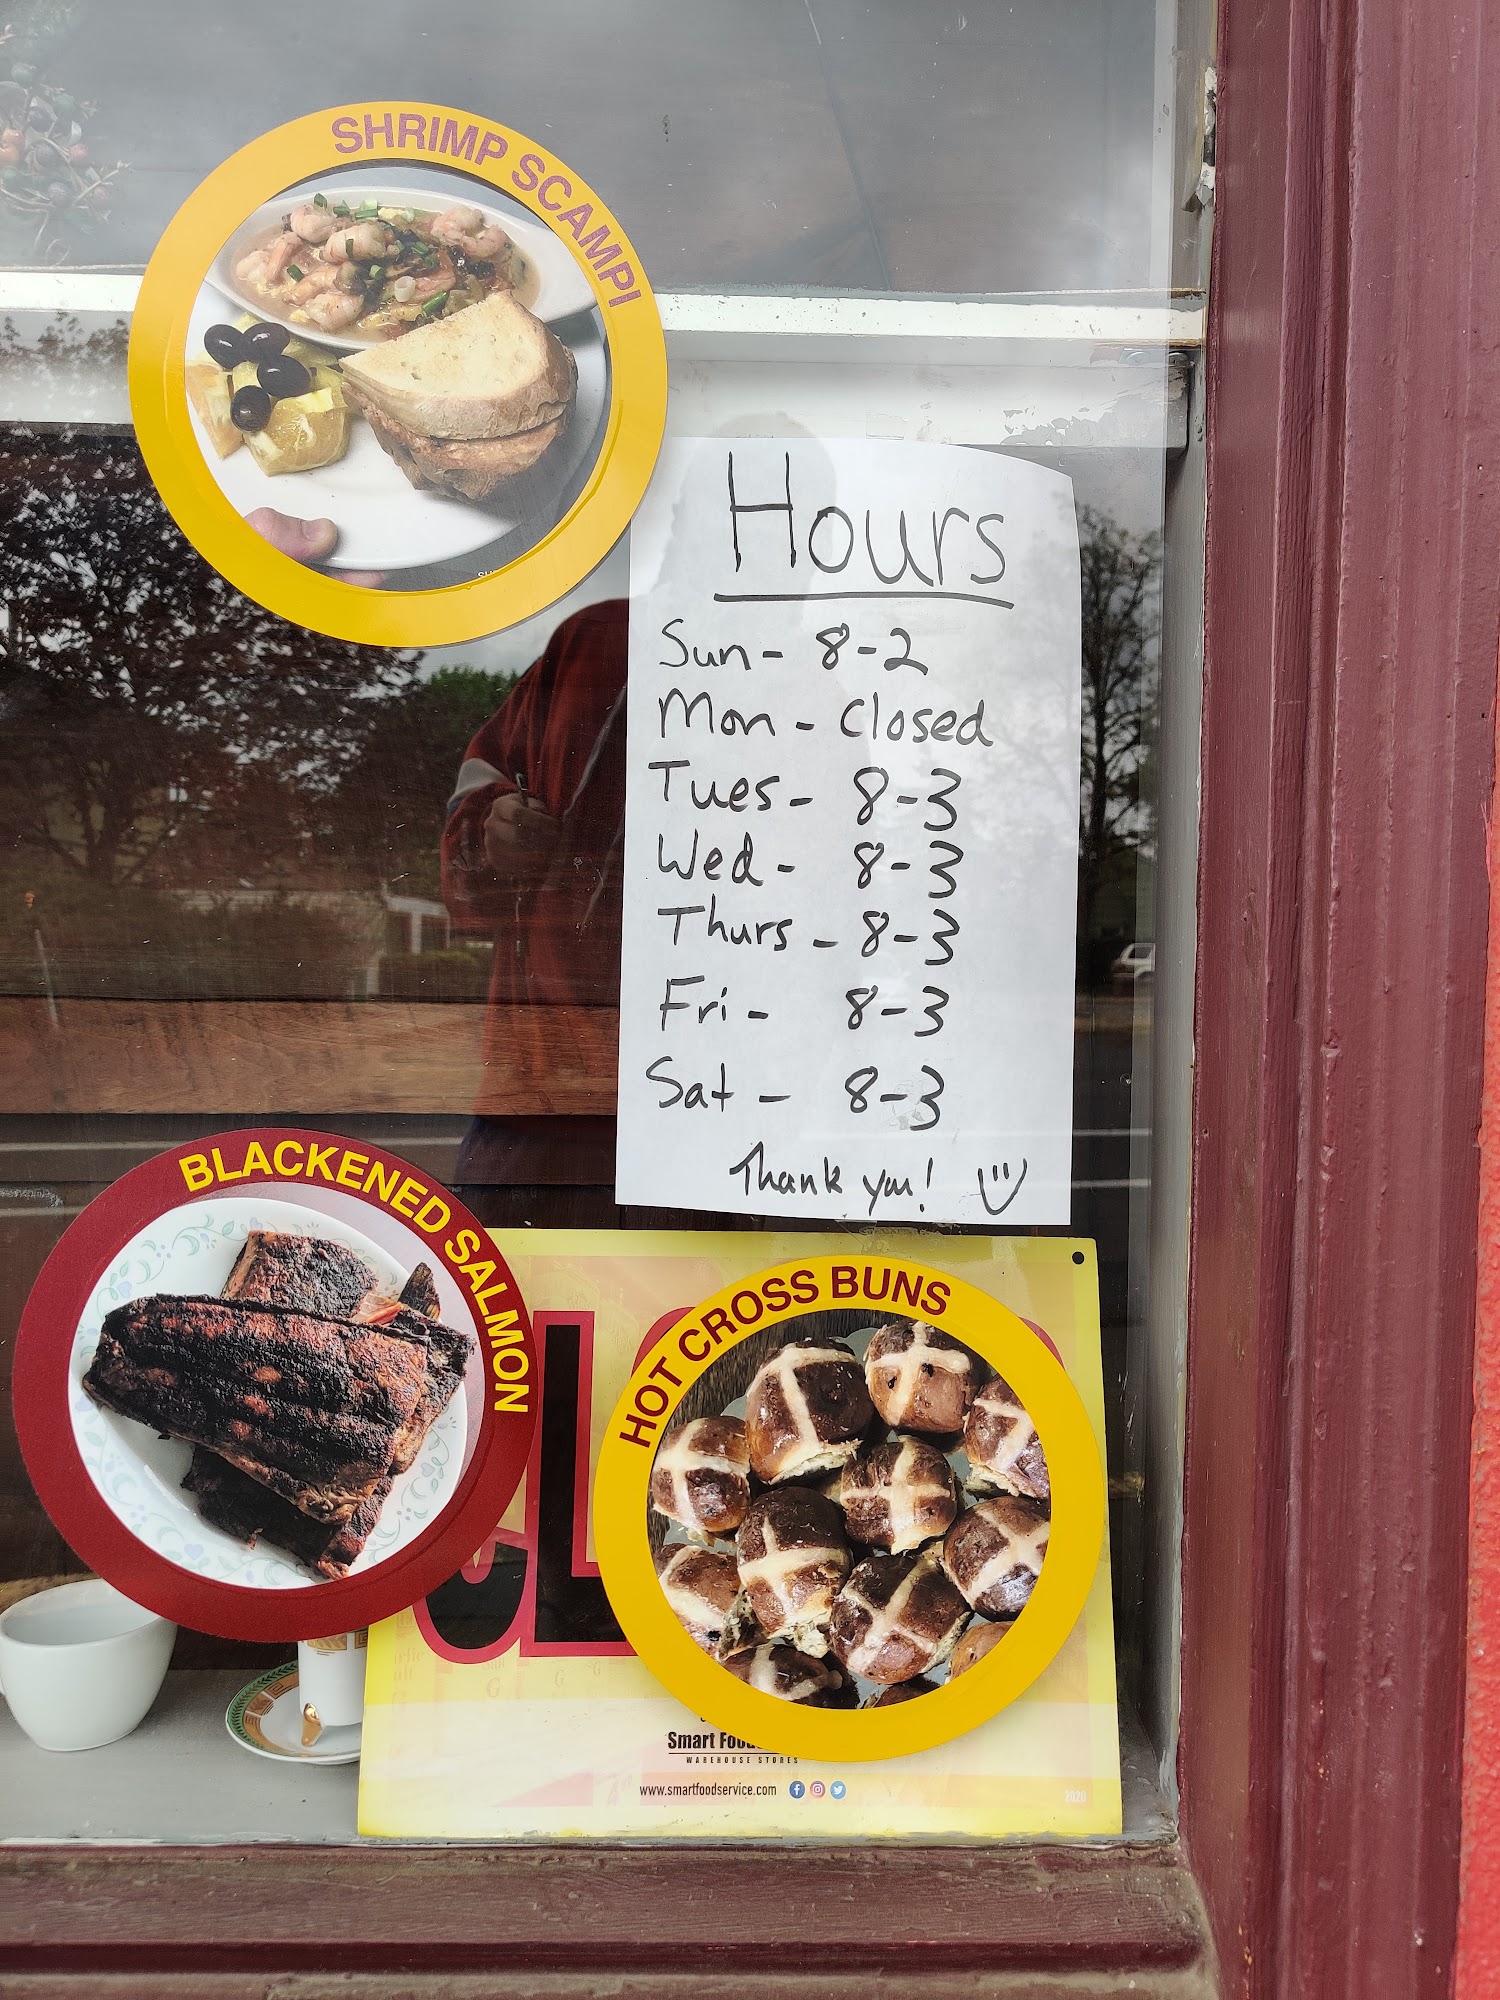 SHRIMP SCAMPI
Hours
Sun - 8-2
Mon - Closed
Tues - 8-3
Wed - 8-3
Thurs - 8-3
Fri - 8-3
Sat - 8-3
Thank you!
BLACKENED SALMON
HOT CROSS BUNS
CL
Smart
WAREHOUSE STORES
www.smartfoodservice.com
2020